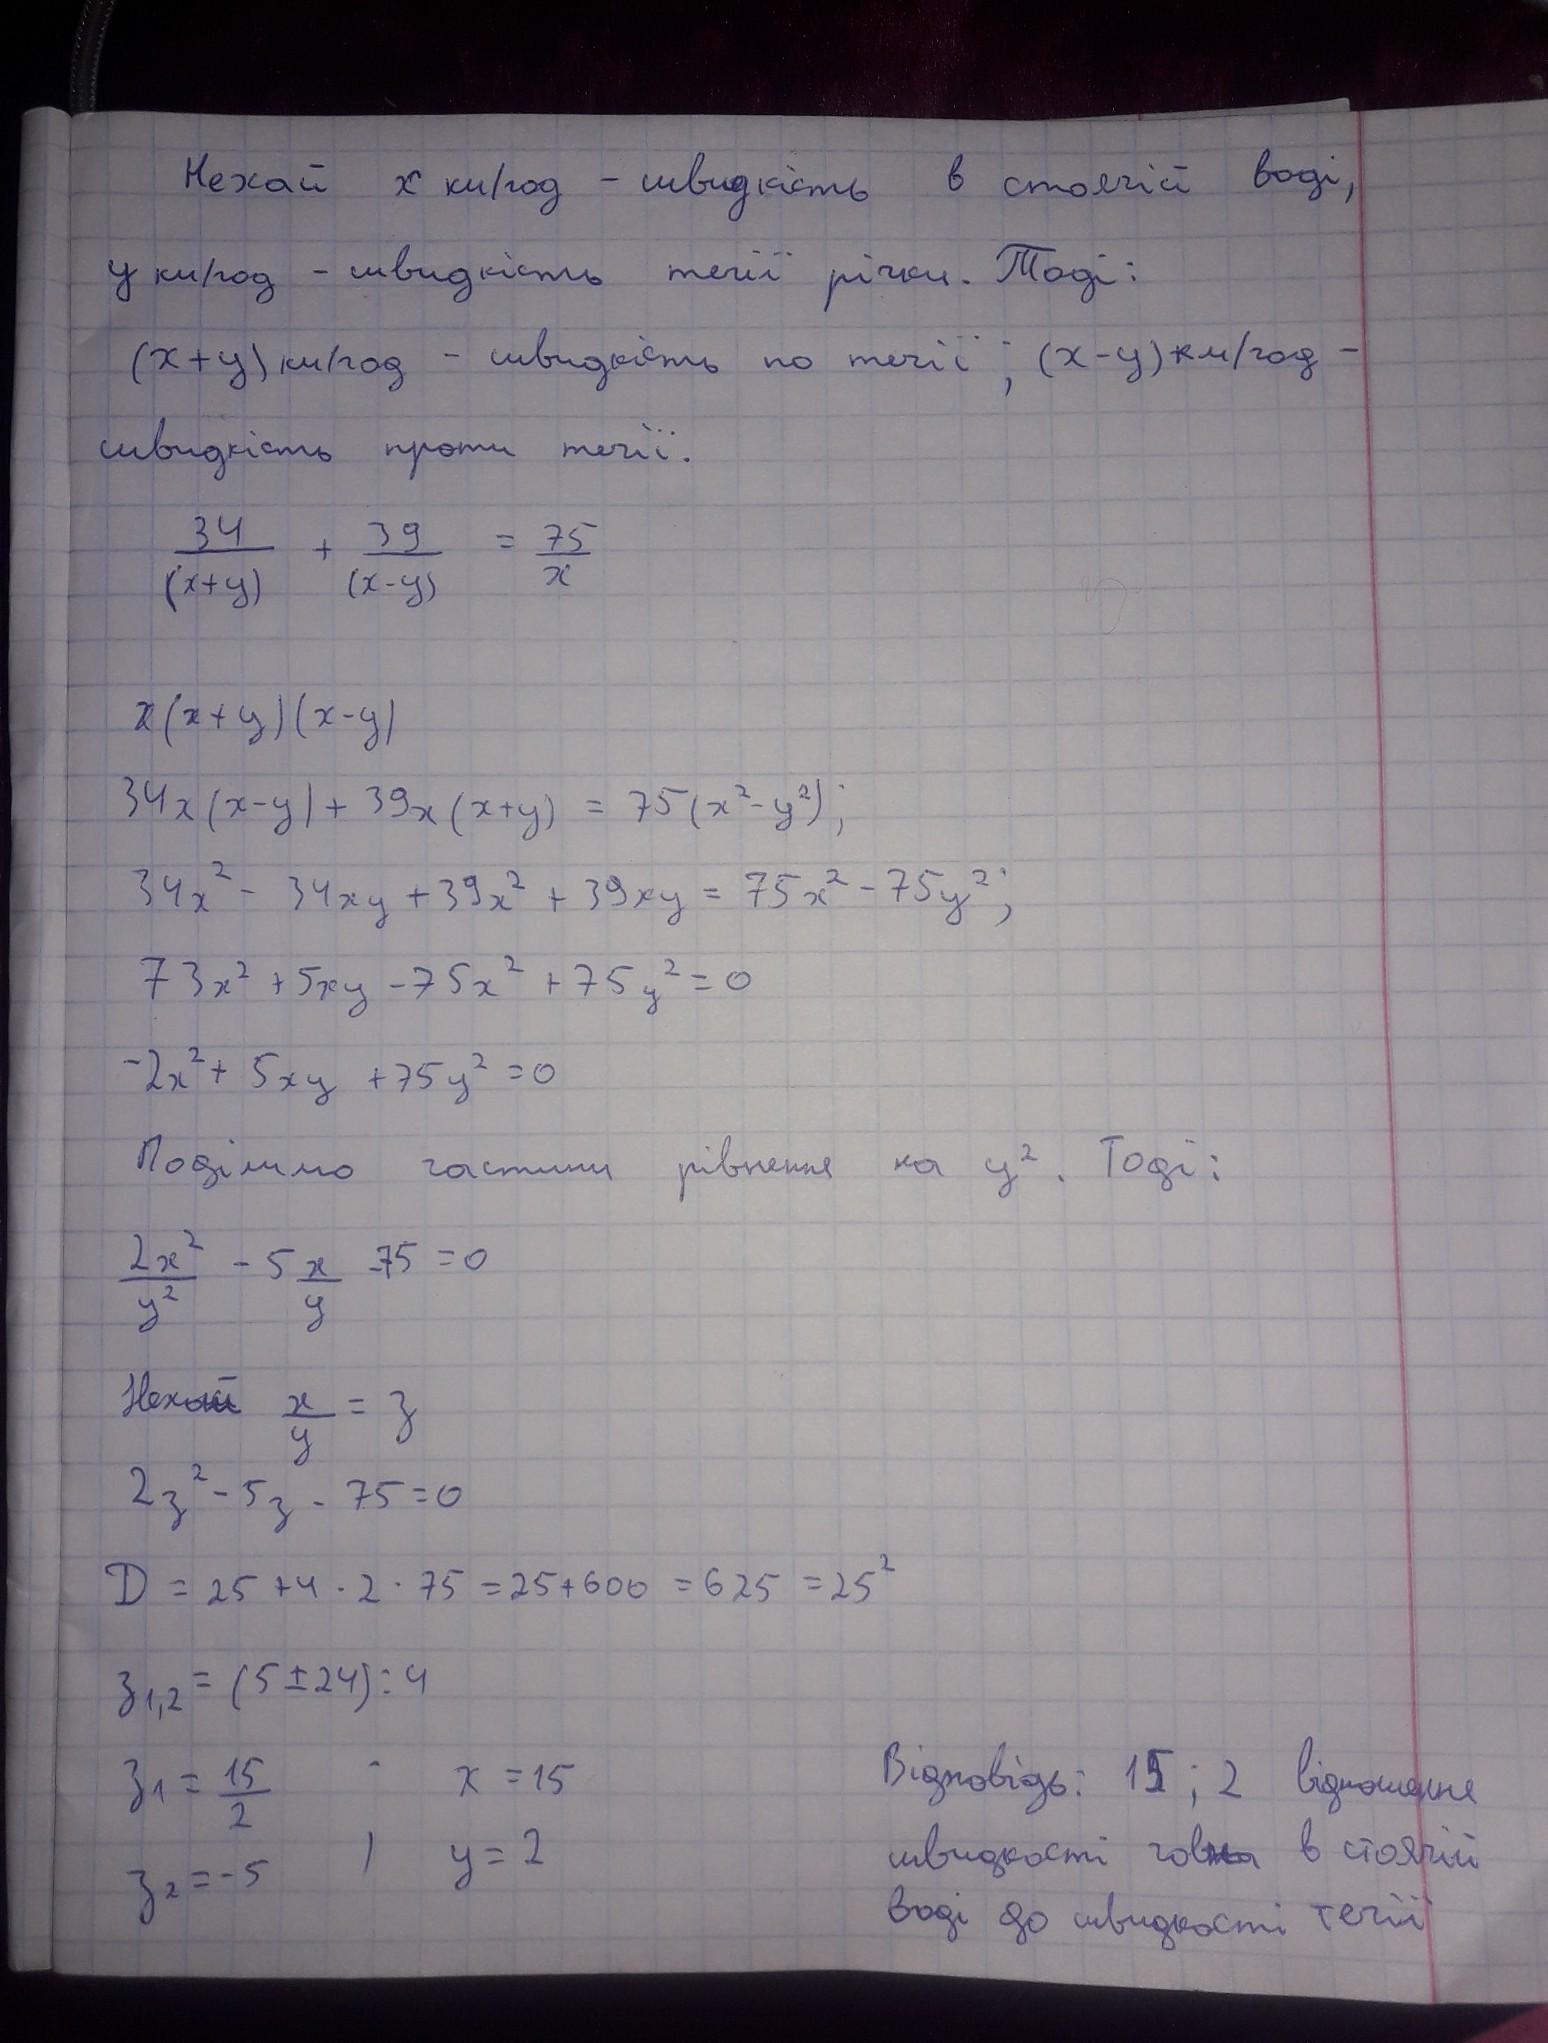 Нехай x км/год - швидкість в стоячій воді,
y км/год - швидкість течії річки. Тоді:
(x+y) км/год - швидкість по течії; (x-y) км/год -
швидкість проти течії.
34/(x+y) + 39/(x-y) = 75/x
x(x+y)(x-y)
34x(x-y) + 39x(x+y) = 75(x²-y²);
34x² - 34xy + 39x² + 39xy = 75x² - 75y²;
73x² + 5xy - 75x² + 75y² = 0
-2x² + 5xy + 75y² = 0
Поділимо частини рівнення на y². Тоді:
2x²/y² - 5x/y - 75 = 0
Нехай x/y = z
2z² - 5z - 75 = 0
D = 25 + 4 · 2 · 75 = 25 + 600 = 625 = 25²
z1,2 = (5 ± 24) : 4
z1 = 15/2
z2 = -5
x = 15
y = 2
Відповідь: 15 ; 2 відношення
швидкості човна в стоячій
воді до швидкості течії